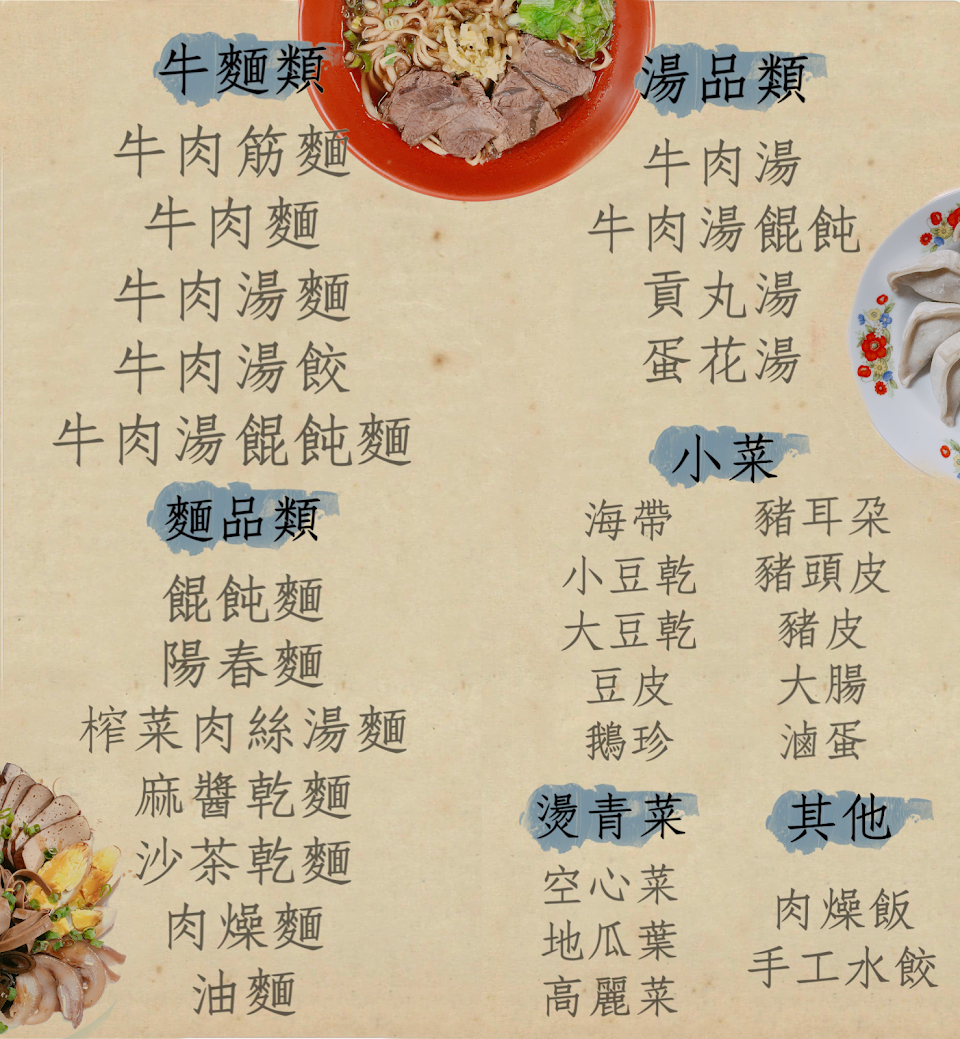 牛麵類
牛肉筋麵
牛肉麵
牛肉湯麵
牛肉湯餃
牛肉湯餛飩麵
麵品類
餛飩麵
陽春麵
榨菜肉絲湯麵
麻醬乾麵
沙茶乾麵
肉燥麵
油麵
湯品類
牛肉湯
牛肉湯餛飩
貢丸湯
蛋花湯
小菜
海帶
小豆乾
大豆乾
豆皮
鵝珍
豬耳朶
豬頭皮
豬皮
大腸
滷蛋
燙青菜
空心菜
地瓜葉
高麗菜
其他
肉燥飯
手工水餃